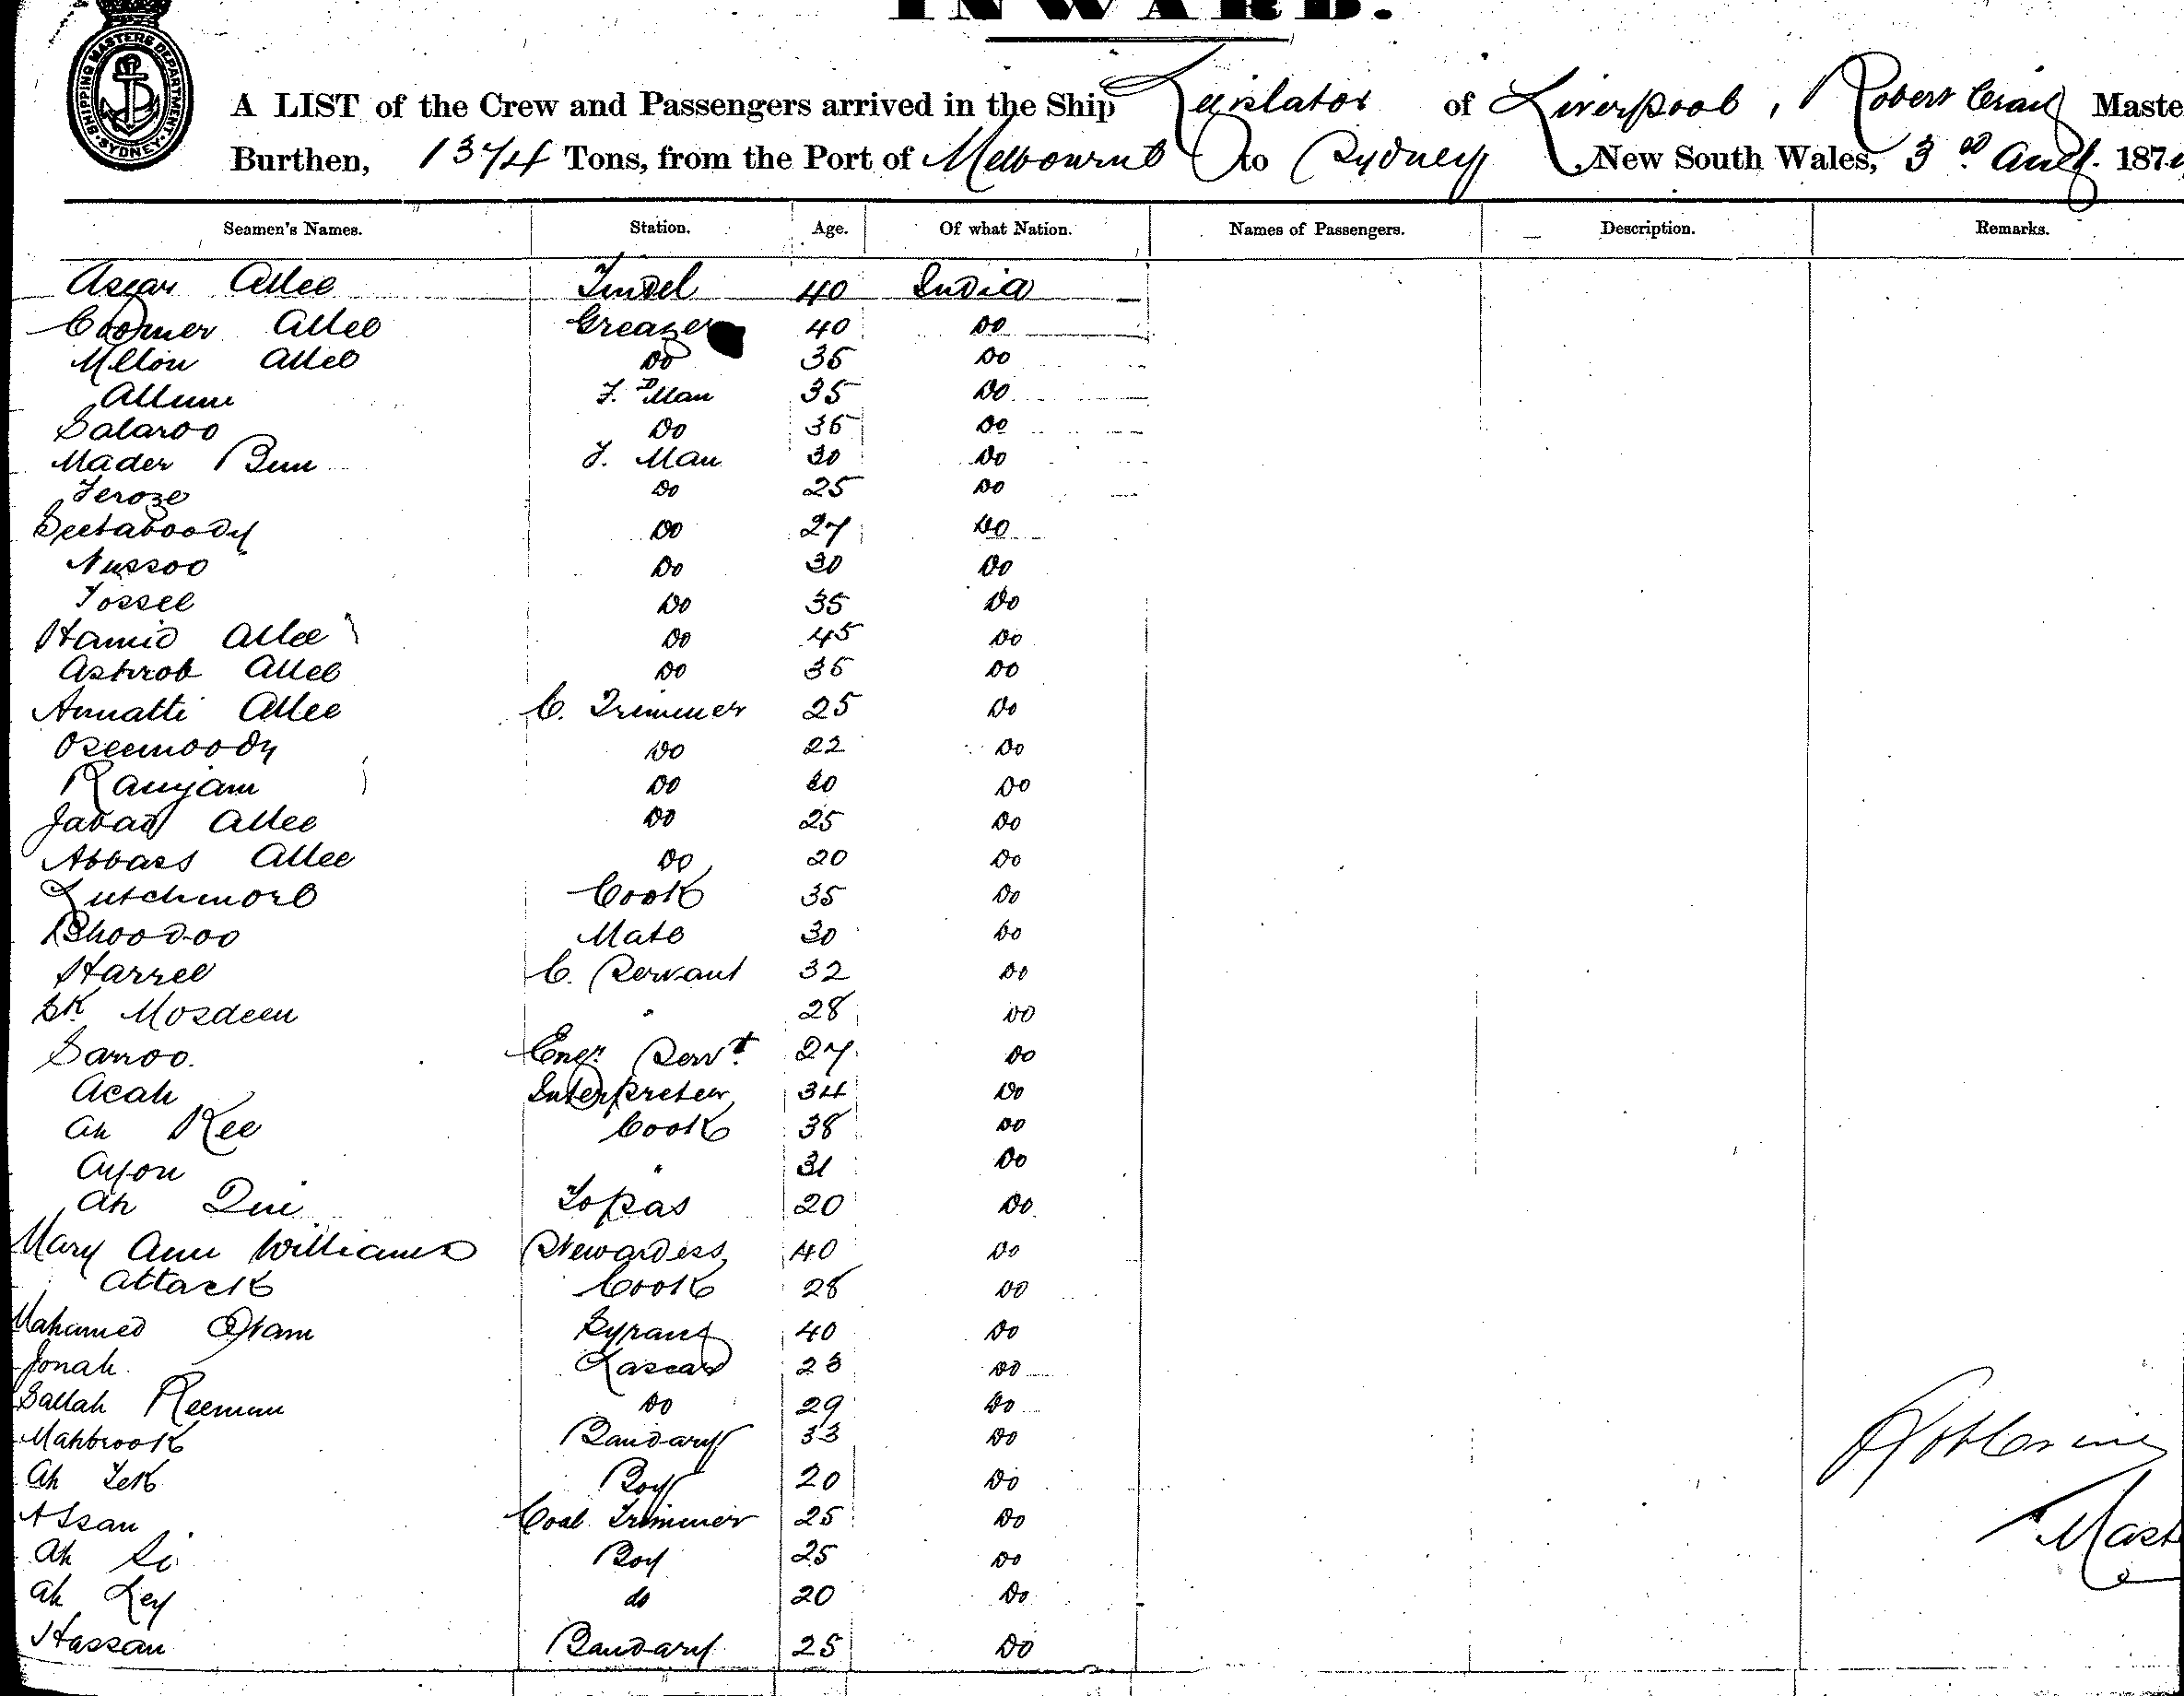 INWARD.
SHIPPING MASTERS DEPARTMENT. SYDNEY
A LIST of the Crew and Passengers arrived in the Ship Legislator of Liverpool, Robert Craig Maste
Burthen, 1374 Tons, from the Port of Melbourne to Sydney New South Wales, 3rd Augt. 187
Seamen's Names. Station. Age. Of what Nation. Names of Passengers. Description. Remarks.
Asgar Allee Tindel 40 India
Coomer Allee Greazer 40 Do
Allee Do 35 Do
Allum F. Man 35 Do
Salaroo Do 35 Do
Mader Bun F. Man 30 Do
Feroze Do 25 Do
Seetaboody Do 27 Do
Nussoo Do 30 Do
Fossel Do 35 Do
Hamid Allee Do 45 Do
Ashrob Allee Do 35 Do
Annatti Allee C. Trimmer 25 Do
Oseemoody Do 22 Do
Ramjam Do Do
Jabad Allee Do 25 Do
Abbass Allee Do 20 Do
Lutchmore Cook 35 Do
Bhoodoo Mate 30 Do
Harree C. Servant 32 Do
Sk Mosdeen " 28 Do
Samoo. Engr. Servt. 27 Do
Acah Interpreter 34 Do
Ah Kee Cook 38 Do
Ayon " 31 Do
Ah Topas 20 Do
Mary Ann Williams Stewardess 40 Do
Attack Cook 28 Do
Mahamed Syrang 40 Do
Jonah Lascar 23 Do
Sallah Reeman Do 29 Do
Mahbrook Bandary 33 Do
Ah Boy 20 Do
Assan Coal Trimmer 25 Do
Ah Si Boy 25 Do
Ah Ley do 20 Do
Hassan Bandary 25 Do
Mast